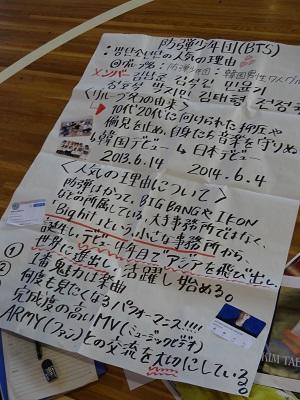 防弾少年団(BTS)
:방탄소년단の人気の理由
◎グループ名:防弾少年団:韓国男性ヒップホップグループ
メンバー 김남준 김석진 민윤기
정호석 박지민 김태형 전정국
〈グループ名の由来〉
10代20代に向けられた抑圧や
偏見を止め、自身たち音楽を守りぬく
韓国デビュー → 日本デビュー
2013.6.14 2014.6.4
〈人気の理由について〉
防弾はかつて、BIGBANGやIKON
などの所属している大手事務所ではなく、
Big hitという小さな事務所から
誕生し、デビュー4年目でアジアを飛び出し、
世界に進出し活躍し始める。
① 1番魅力は楽曲
② 何度も見たくなるパフォーマンス!!!!
完成度の高いMV(ミュージックビデオ)
ARMY(ファン)との交流を大切にしている。
KIM TAE